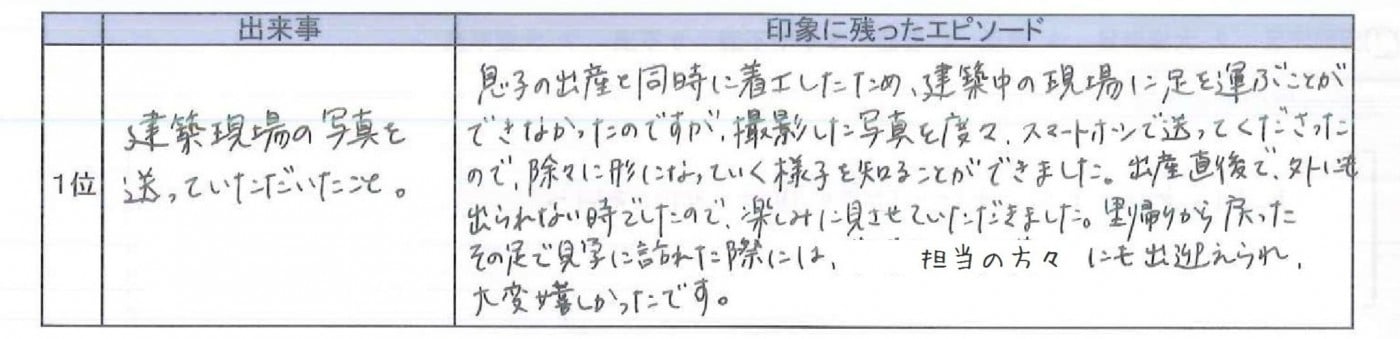 出来事
印象に残ったエピソード
1位
建築現場の写真を
送っていただいたこと。
息子の出産と同時に着工したため、建築中の現場に足を運ぶことが
できなかったのですが、撮影した写真を度々、スマートホンで送ってくださった
ので、除々に形になっていく様子を知ることができました。出産直後で、外にも
出られない時でしたので、楽しみに見させていただきました。里帰りから戻った
その足で見学に訪れた際には、 担当の方々 にも出迎えられ、
大変嬉しかったです。